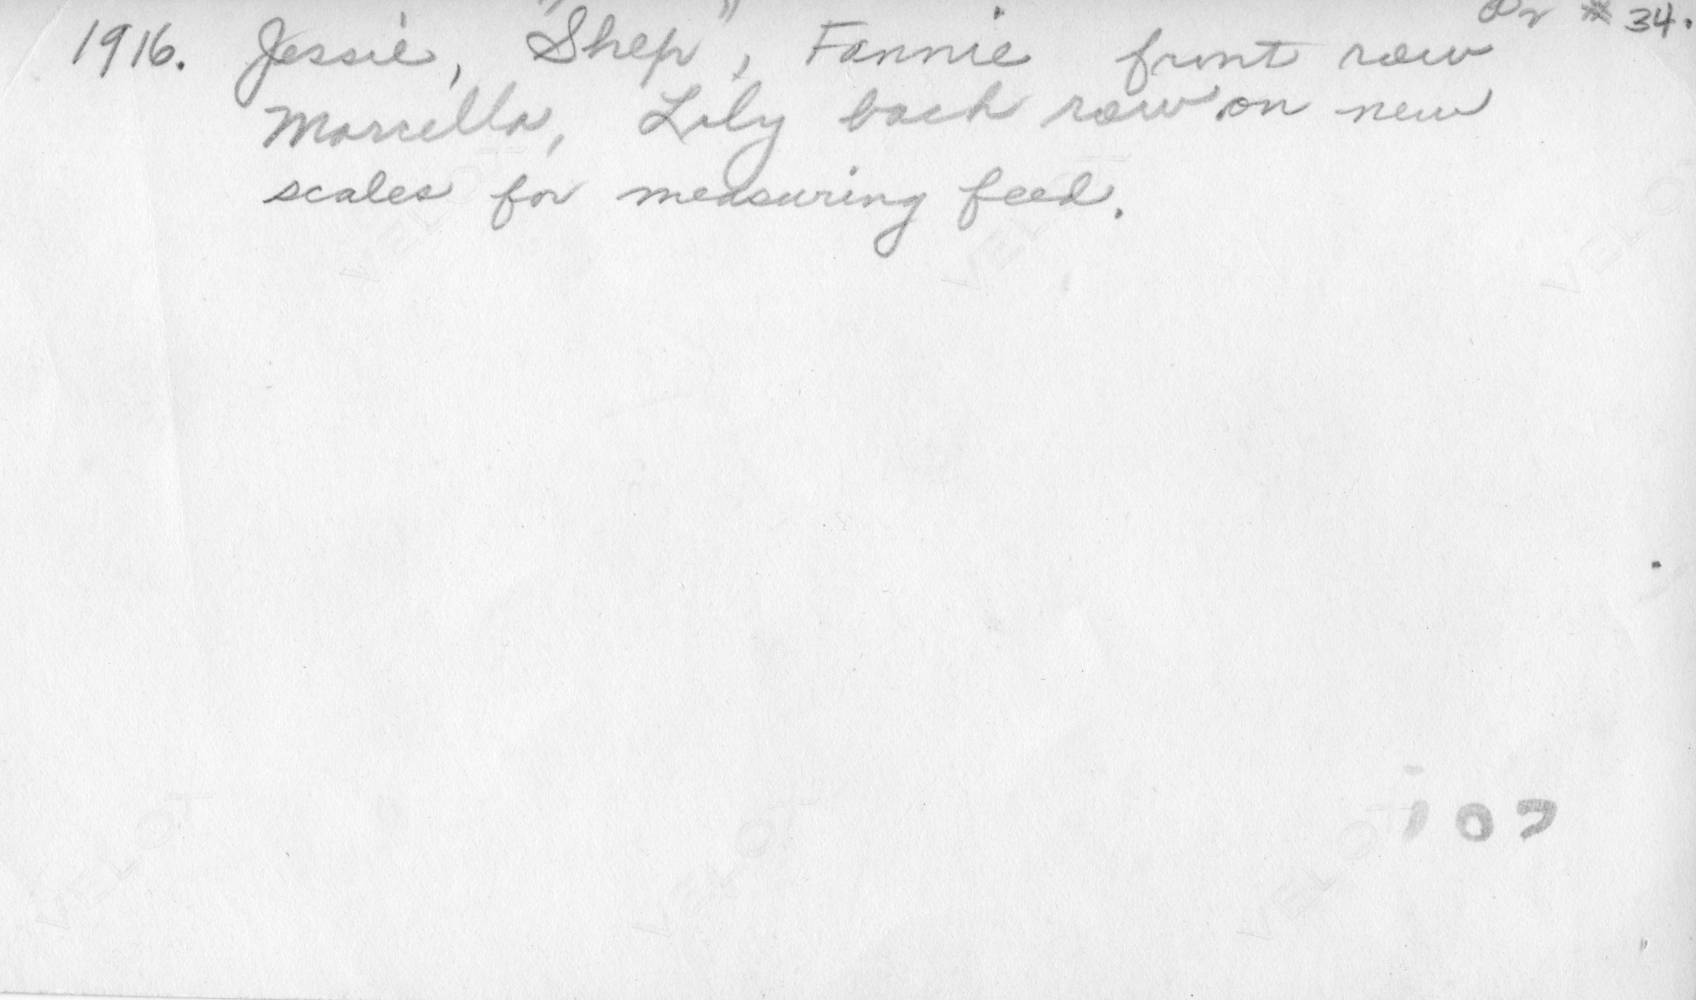 Pr # 34.
1916. Jessie, "Shep", Fannie front row
Marcella, Lily back row on new
scales for measuring feed.
VELOX
VELOX
VELOX
VELOX
VELOX
VELOX
107